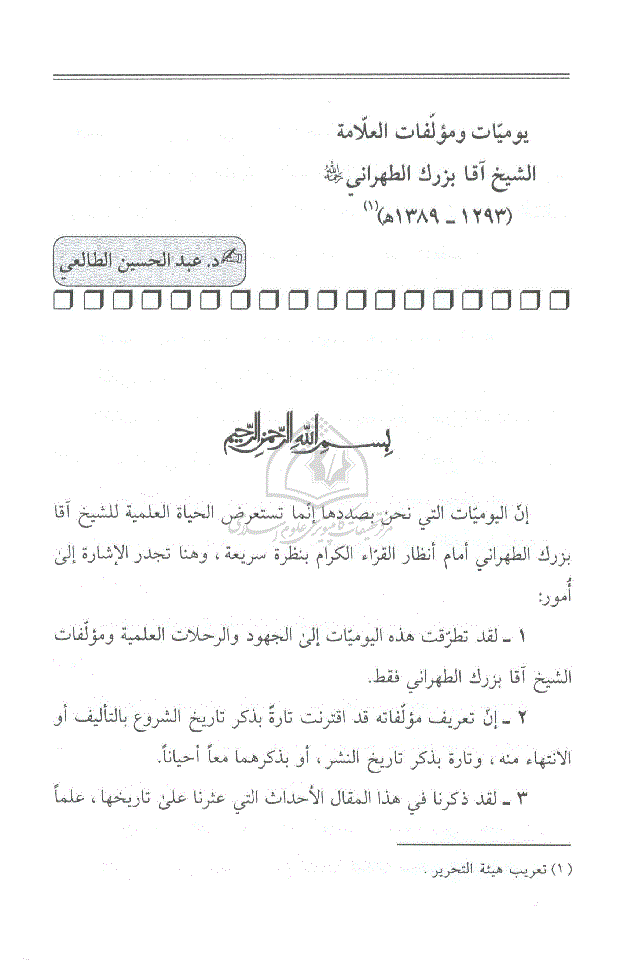 يوميّات ومؤلّفات العلّامة
الشيخ آقا بزرك الطهراني
(١٢٩٣ ـ ١٣٨٩هـ)(١)
د. عبد الحسين الطالعي
بسم الله الرحمن الرحيم
إنّ اليوميّات التي نحن بصددها إنّما تستعرض الحياة العلمية للشيخ آقا
بزرك الطهراني أمام أنظار القرّاء الكرام بنظرة سريعة، وهنا تجدر الإشارة إلىٰ
أُمور:
١ ـ لقد تطرّقت هذه اليوميّات إلىٰ الجهود والرحلات العلمية ومؤلّفات
الشيخ آقا بزرك الطهراني فقط.
٢ ـ إنّ تعريف مؤلّفاته قد اقترنت تارةً بذكر تاريخ الشروع بالتأليف أو
الانتهاء منه، وتارة بذكر تاريخ النشر، أو بذكرهما معاً أحياناً.
٣ ـ لقد ذكرنا في هذا المقال الأحداث التي عثرنا علىٰ تاريخها، علماً
(١) تعريب هيئة التحرير.
مرکز تحقیقات کامپیوتری علوم اسلامی